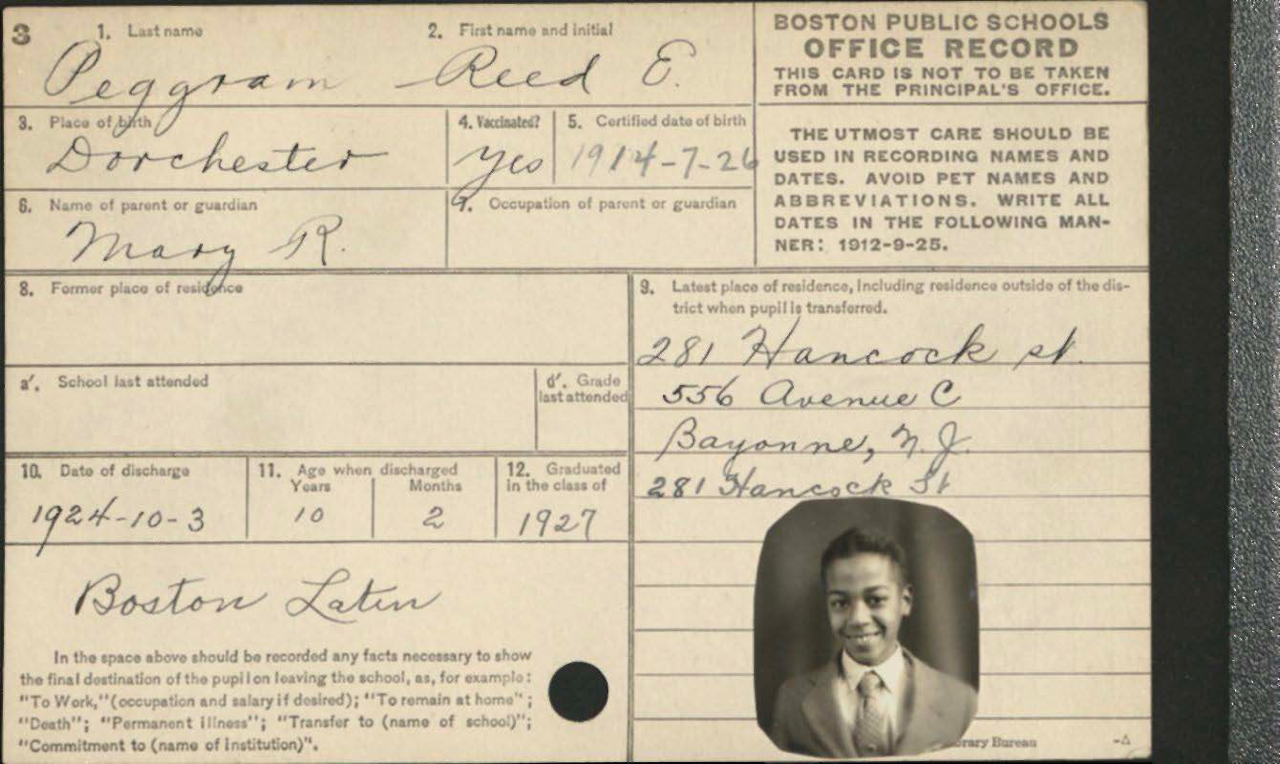 3
1. Last name 2. First name and initial
Peggram Reed E.
3. Place of birth 4. Vaccinated? 5. Certified date of birth
Dorchester yes 1914-7-26
6. Name of parent or guardian 7. Occupation of parent or guardian
Mary R.
BOSTON PUBLIC SCHOOLS
OFFICE RECORD
THIS CARD IS NOT TO BE TAKEN
FROM THE PRINCIPAL'S OFFICE.
THE UTMOST CARE SHOULD BE
USED IN RECORDING NAMES AND
DATES. AVOID PET NAMES AND
ABBREVIATIONS. WRITE ALL
DATES IN THE FOLLOWING MAN-
NER: 1912-9-25.
8. Former place of residence
a'. School last attended d'. Grade
last attended
9. Latest place of residence, including residence outside of the dis-
trict when pupil is transferred.
281 Hancock st.
556 Avenue C
Bayonne, N.J.
281 Hancock St
10. Date of discharge 11. Age when discharged 12. Graduated
Years Months in the class of
1924-10-3 10 2 1927
Boston Latin
In the space above should be recorded any facts necessary to show
the final destination of the pupil on leaving the school, as, for example:
"To Work," (occupation and salary if desired); "To remain at home";
"Death"; "Permanent illness"; "Transfer to (name of school)";
"Commitment to (name of institution)".
Bureau